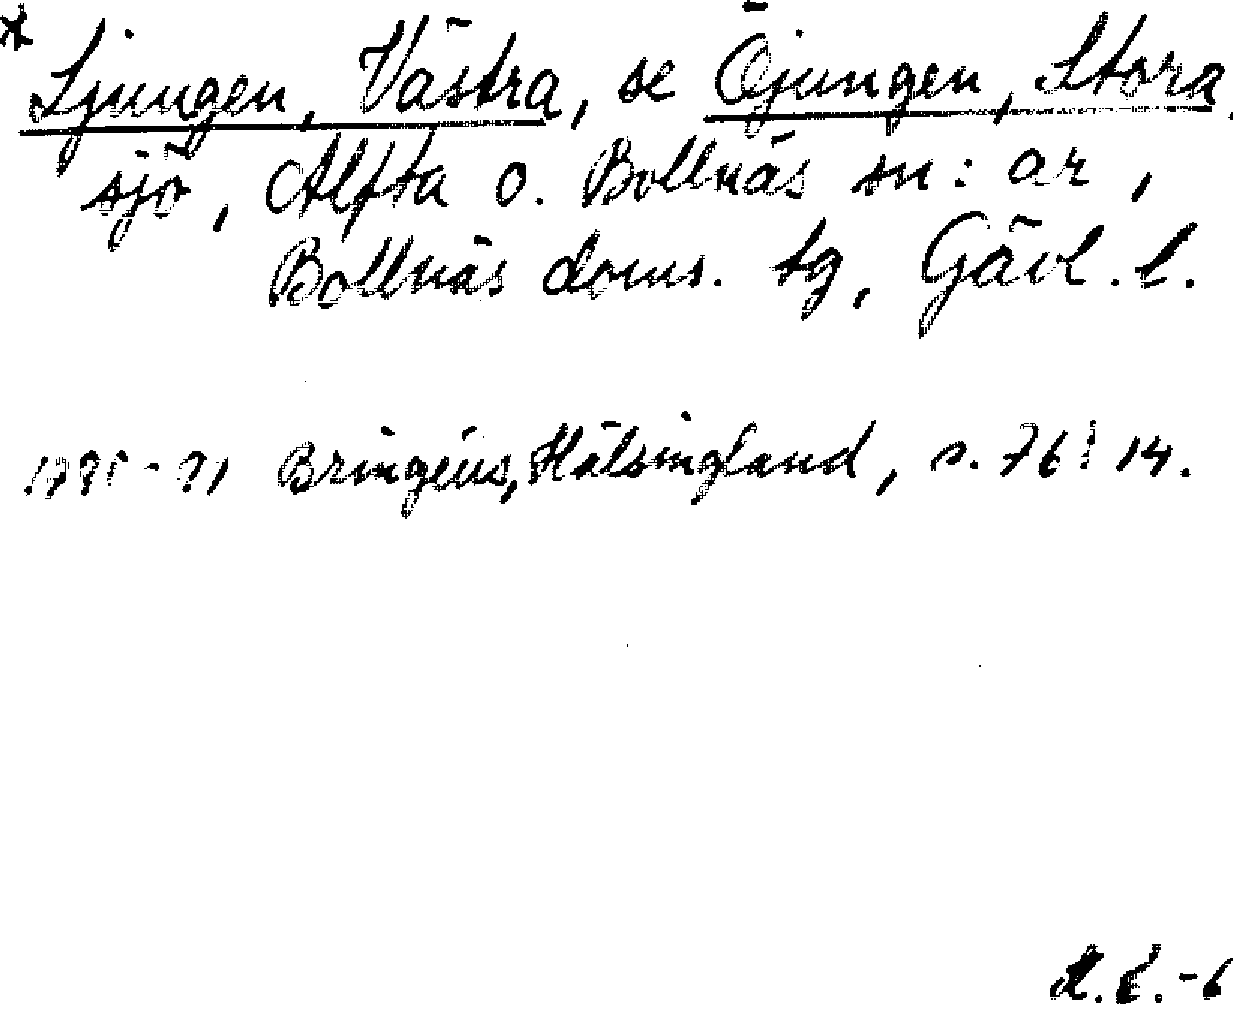 * Ljungen, Västra, se Öjungen, Stora.
sjö, Alfta o. Bollnäs sn:ar,
Bollnäs doms. tg, Gävl. l.
Bringéus, Hälsingland, s. 76: 14.